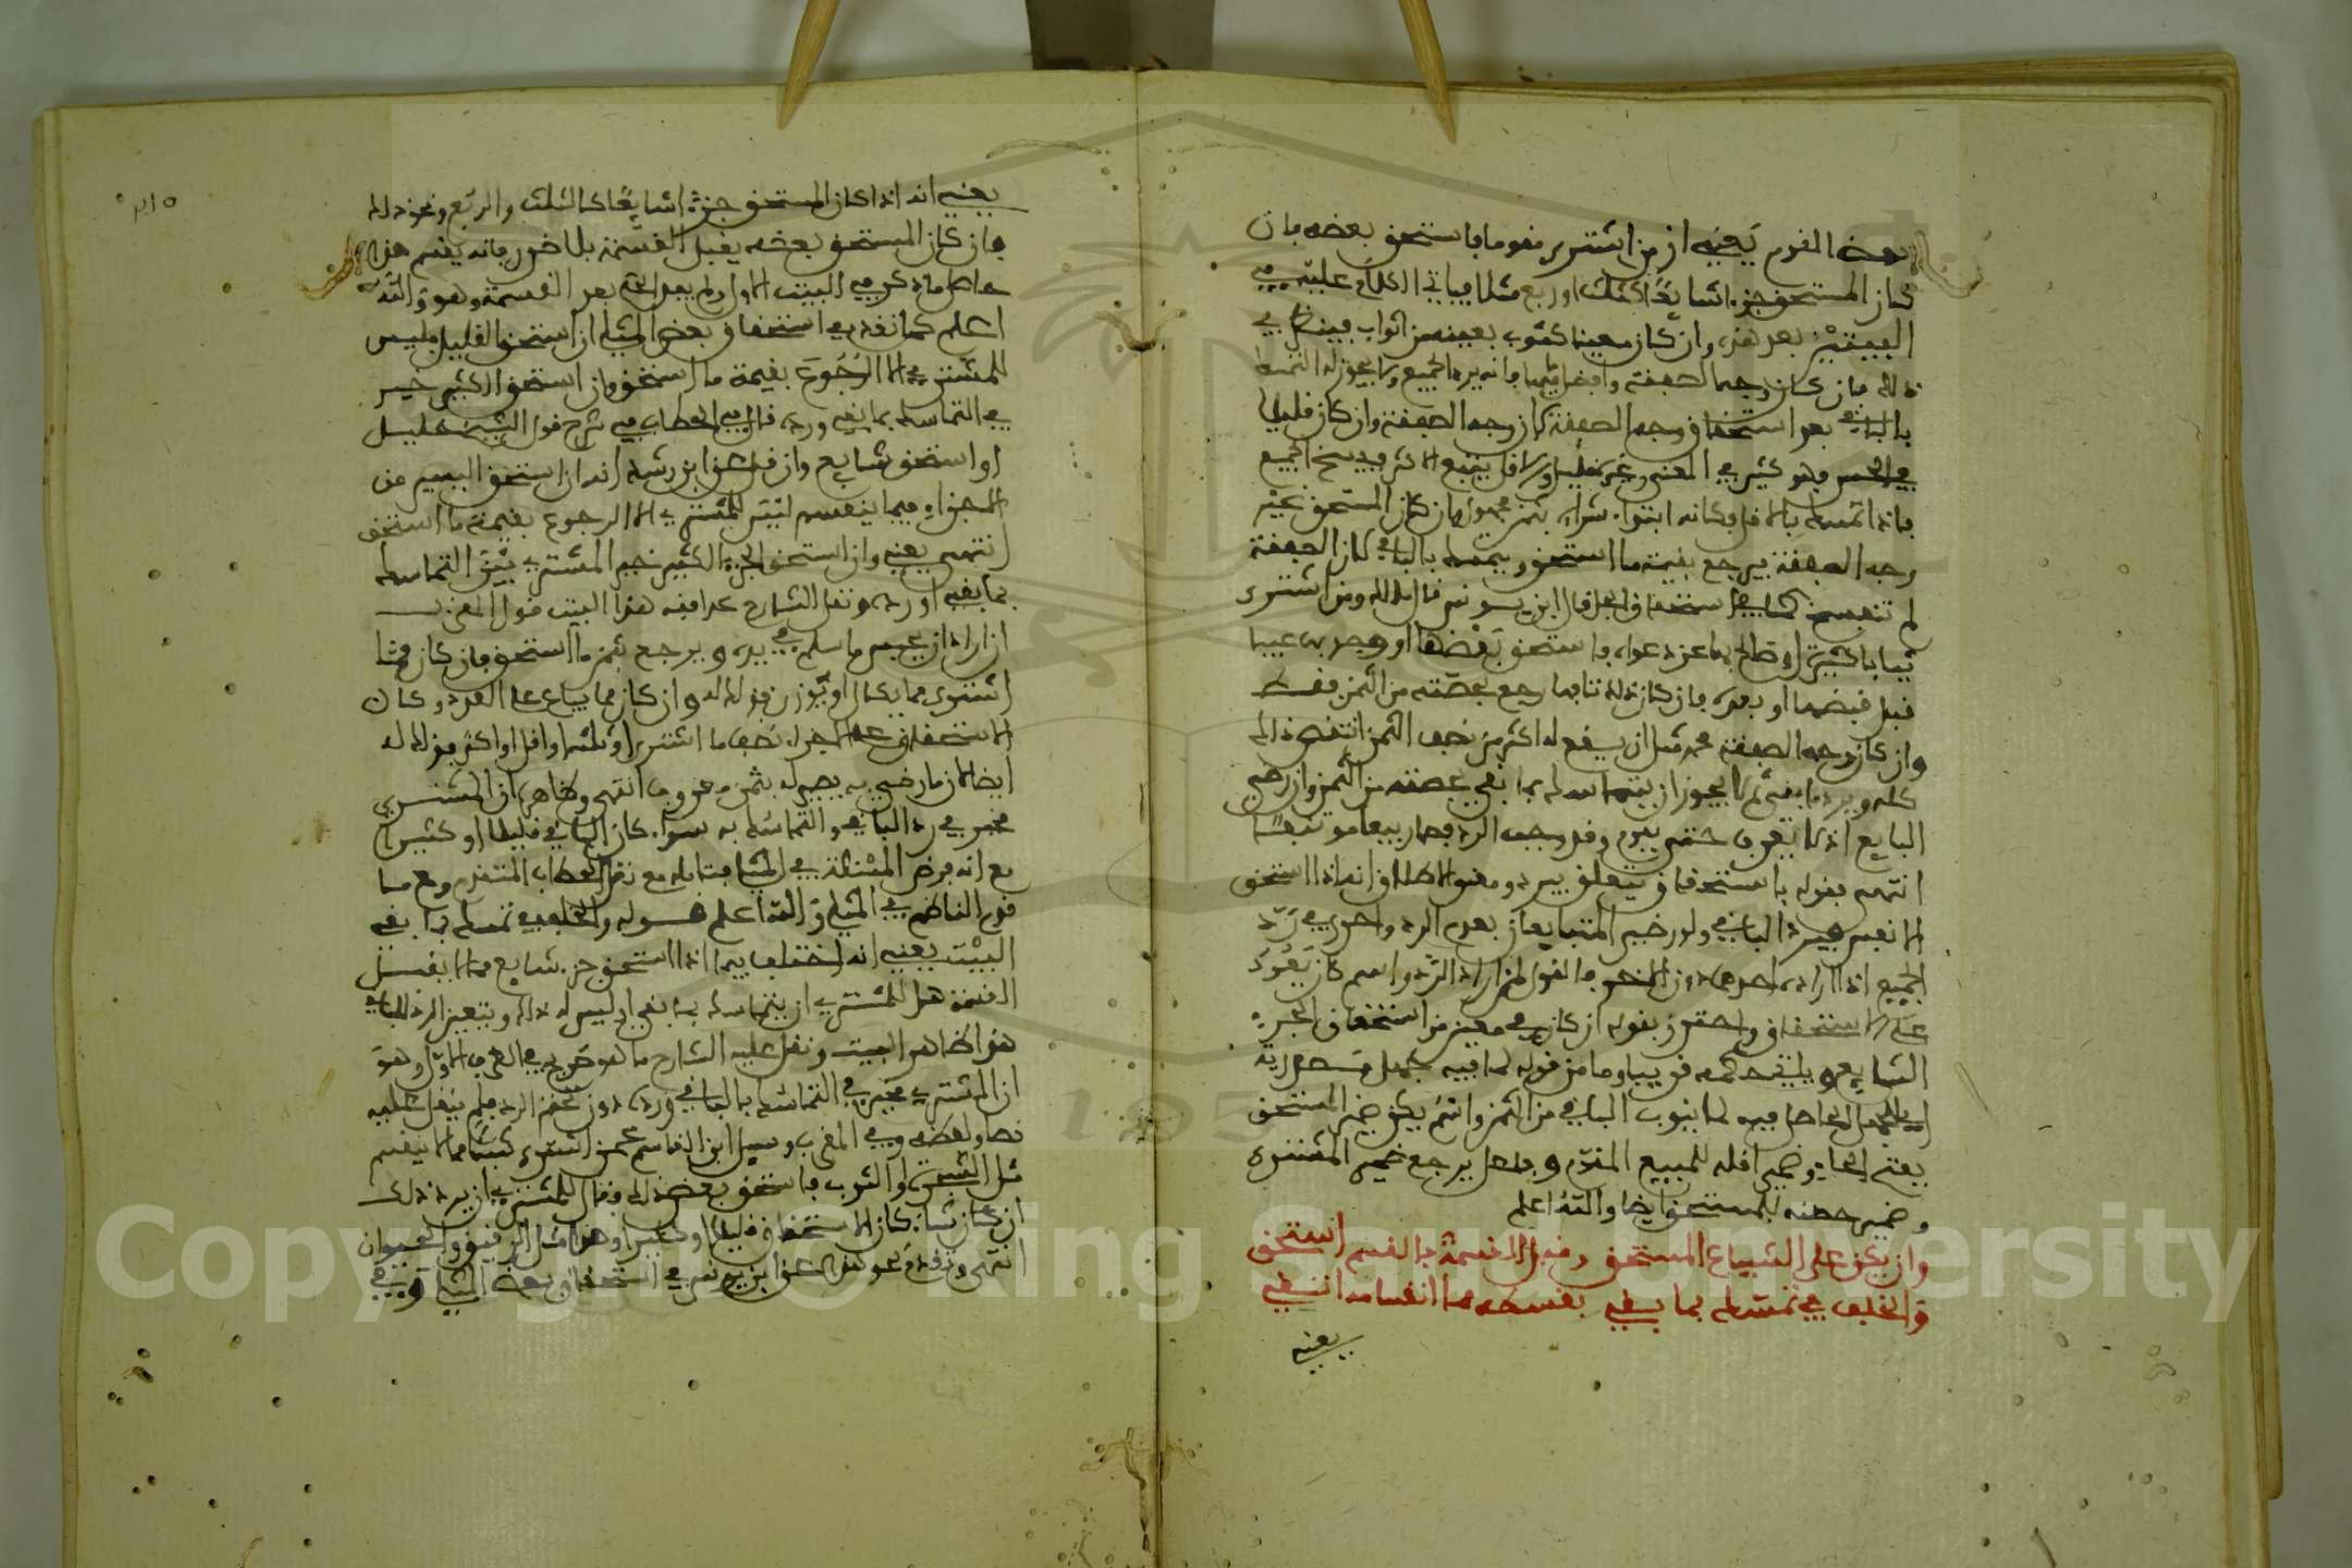 بعض المقوم يعني ان من اشترى مقوما فاستحق بعضه فان
كان المستحق جزءا شايعا كثلث او ربع مثلا فياتي الكلام عليه في
البيتين بعد هذا وان كان معينا كثوب بعينه من اثواب فينظر في
ذلك فان كان وجه الصفقة وافضلها فانه يرد الجميع ولا يجوز له التمسك
بالباقي بعد استحقاق وجه الصفقة كان وجه الصفقة وان كان قليلا
في الحس فهو كثير في المعنى وغير قليل والاقل يتبع الاكثر فيفسخ الجميع
فاذا تمسك بالاقل فكانه ابتدا شراء بثمن مجهول فان كان المستحق غير
وجه الصفقة فيرجع بقيمة ما استحق ويمسك بالباقي كان الصفقة
لم تنعقد قال ابن يونس قال مالك ومن اشترى
ثيابا كثيرة او صالح بها عن دعواه فاستحق بعضها او وجد به عيبا
قبل قبضها او بعده فان كان ذلك تابعا رجع بحصته من الثمن فقط
وان كان وجه الصفقة مثل ان يقع له اكثر من نصف الثمن انتقض ذلك
كله ويرد ما بقي ثم لا يجوز ان يتماسك بما بقي بحصته من الثمن وان رضي
البايع اذ لا يعرف حتى يقوم وقد وجب الرد فصار بيعا مؤتنفا
انتهى فقوله باستحقاق يتعلق بيرد ومعنى اطلاق انه اذا استحق
الانفس فيرد الباقي ولو رضي المتبايعان بعدم الرد واحرى في رد
الجميع اذا اراده احدهما دون الاخر فالقول لمن اراد الرد واسم كان يعود
على الاستحقاق واحترز بقوله ان كان في معين من استحقاق الجزء
الشايع وياتي حكمه قريبا وما من قوله لما فيه بجهل
اي للجهل الحاصل فيه لما ينوب الباقي من الثمن واسم يكن ضمير المستحق
بفتح الحاء وضمير اقله للمبيع المتقدم وفاعل يرجع ضمير المشترى
وضمير حصته للمستحق ايضا والله اعلم
وان يكن على الشياع المستحق وقبل القسمة بالقسم استحق
والخلف في تمسك بما بقي بقسطه مما انقسامه انتفي
يعني
يعني انه اذا كان المستحق جزءا شايعا كالثلث والربع ونحو ذلك
فان كان المستحق بعضه يقبل القسمة بلا ضرر فانه يقسم هذا
حاصل ما ذكر في البيت الاول ولم يبين الحكم بعد القسمة وهو والله
اعلم كما تقدم في استحقاق بعض المثلي ان استحق القليل فليس
للمشتري الا الرجوع بقيمة ما استحق وان استحق الكثير خير
في التماسك بما بقي ورده قال في الحطاب في شرح قول الشيخ خليل
او استحق شايع وان قل عن ابن رشد انه ان استحق اليسير من
الاجزاء فيما ينقسم ليس للمشتري الا الرجوع بقيمة ما استحق
انتهى يعني وان استحق الجزء الكثير خير المشتري بين التماسك
بما بقي او رده ونقل الشارح عند هذا البيت قول المغرب
ان اراد ان يحبس ما سلم في يده ويرجع بثمن ما استحق فان كان فيما
اشترى مما يكال او يوزن فذلك له وان كان مما يباع على العدد وكان
الاستحقاق على الاجزاء نصف ما اشترى او ثلثه او اقل او اكثر فذلك له
ايضا لان ما رضي به يصير له بثمن معروف انتهى وظاهره ان المشتري
مخير في رد الباقي والتماسك به سواء كان الباقي قليلا او كثيرا
مع انه فرض المسئلة في المثلي فتامله مع نقل الحطاب المتقدم ومع ما
قول الناظم في المثلي والله اعلم قوله والخلف في تمسك بما بقي
البيت يعني انه اختلف فيما اذا استحق جزء شايع مما لا يقبل
القسمة هل للمشتري ان يتماسك بما بقي او ليس له ذلك ويتعين الرد للباقي
هذا ظاهر البيت ونقل عليه الشارح ما هو صريح في القول الاول وهو
ان المشتري مخير في التماسك بالباقي ورده دون تحتم الرد فلم ينقل عليه
نصا ولفظه وفي المقرب وسئل ابن القاسم عمن اشترى شيئا مما لا ينقسم
مثل الشجرة او الثوب فاستحق بعض ذلك فقال للمشتري ان يرد ذلك
ان كان شاء كان الاستحقاق قليلا او كثيرا وهذا مثل الرقيق والحيوان
انتهى وتقدم نحو هذا عن ابن يونس في استحقاق بعض المثلي وفي
٣١٥